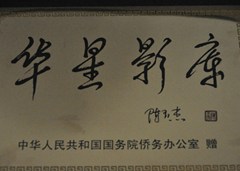 华星影库
陈玉杰
中华人民共和国国务院侨务办公室 赠